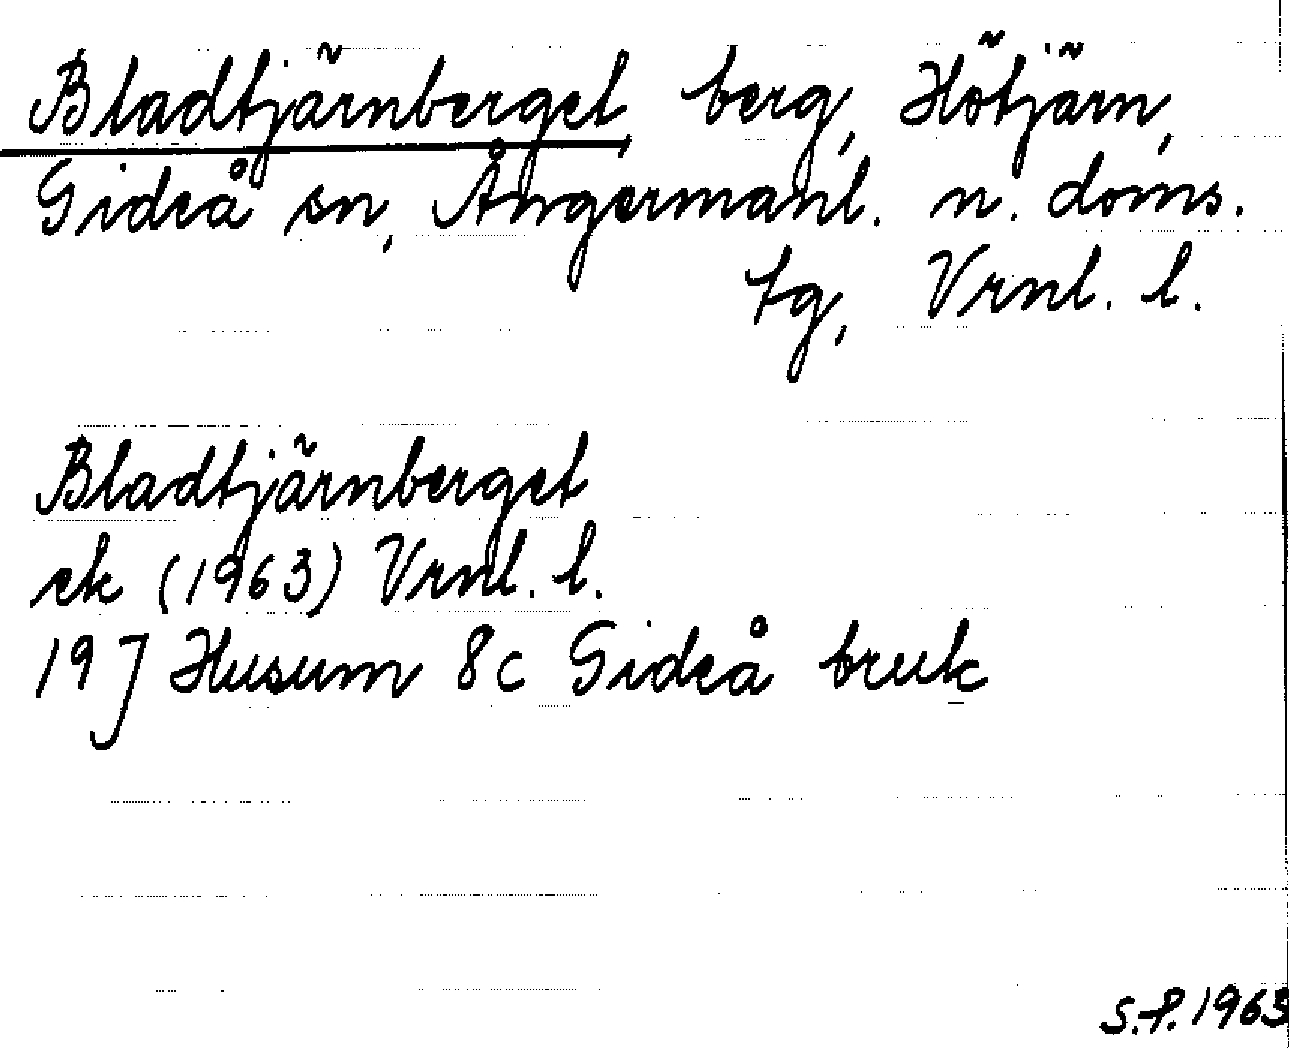 Bladtjärnberget, berg, Hötjärn,
Gideå sn, Ångermanl. n. doms.
tg, Vrnl. l.
Bladtjärnberget
ek (1963) Vrnl. l.
19J Husum 8c Gideå bruk
S.P. 1963